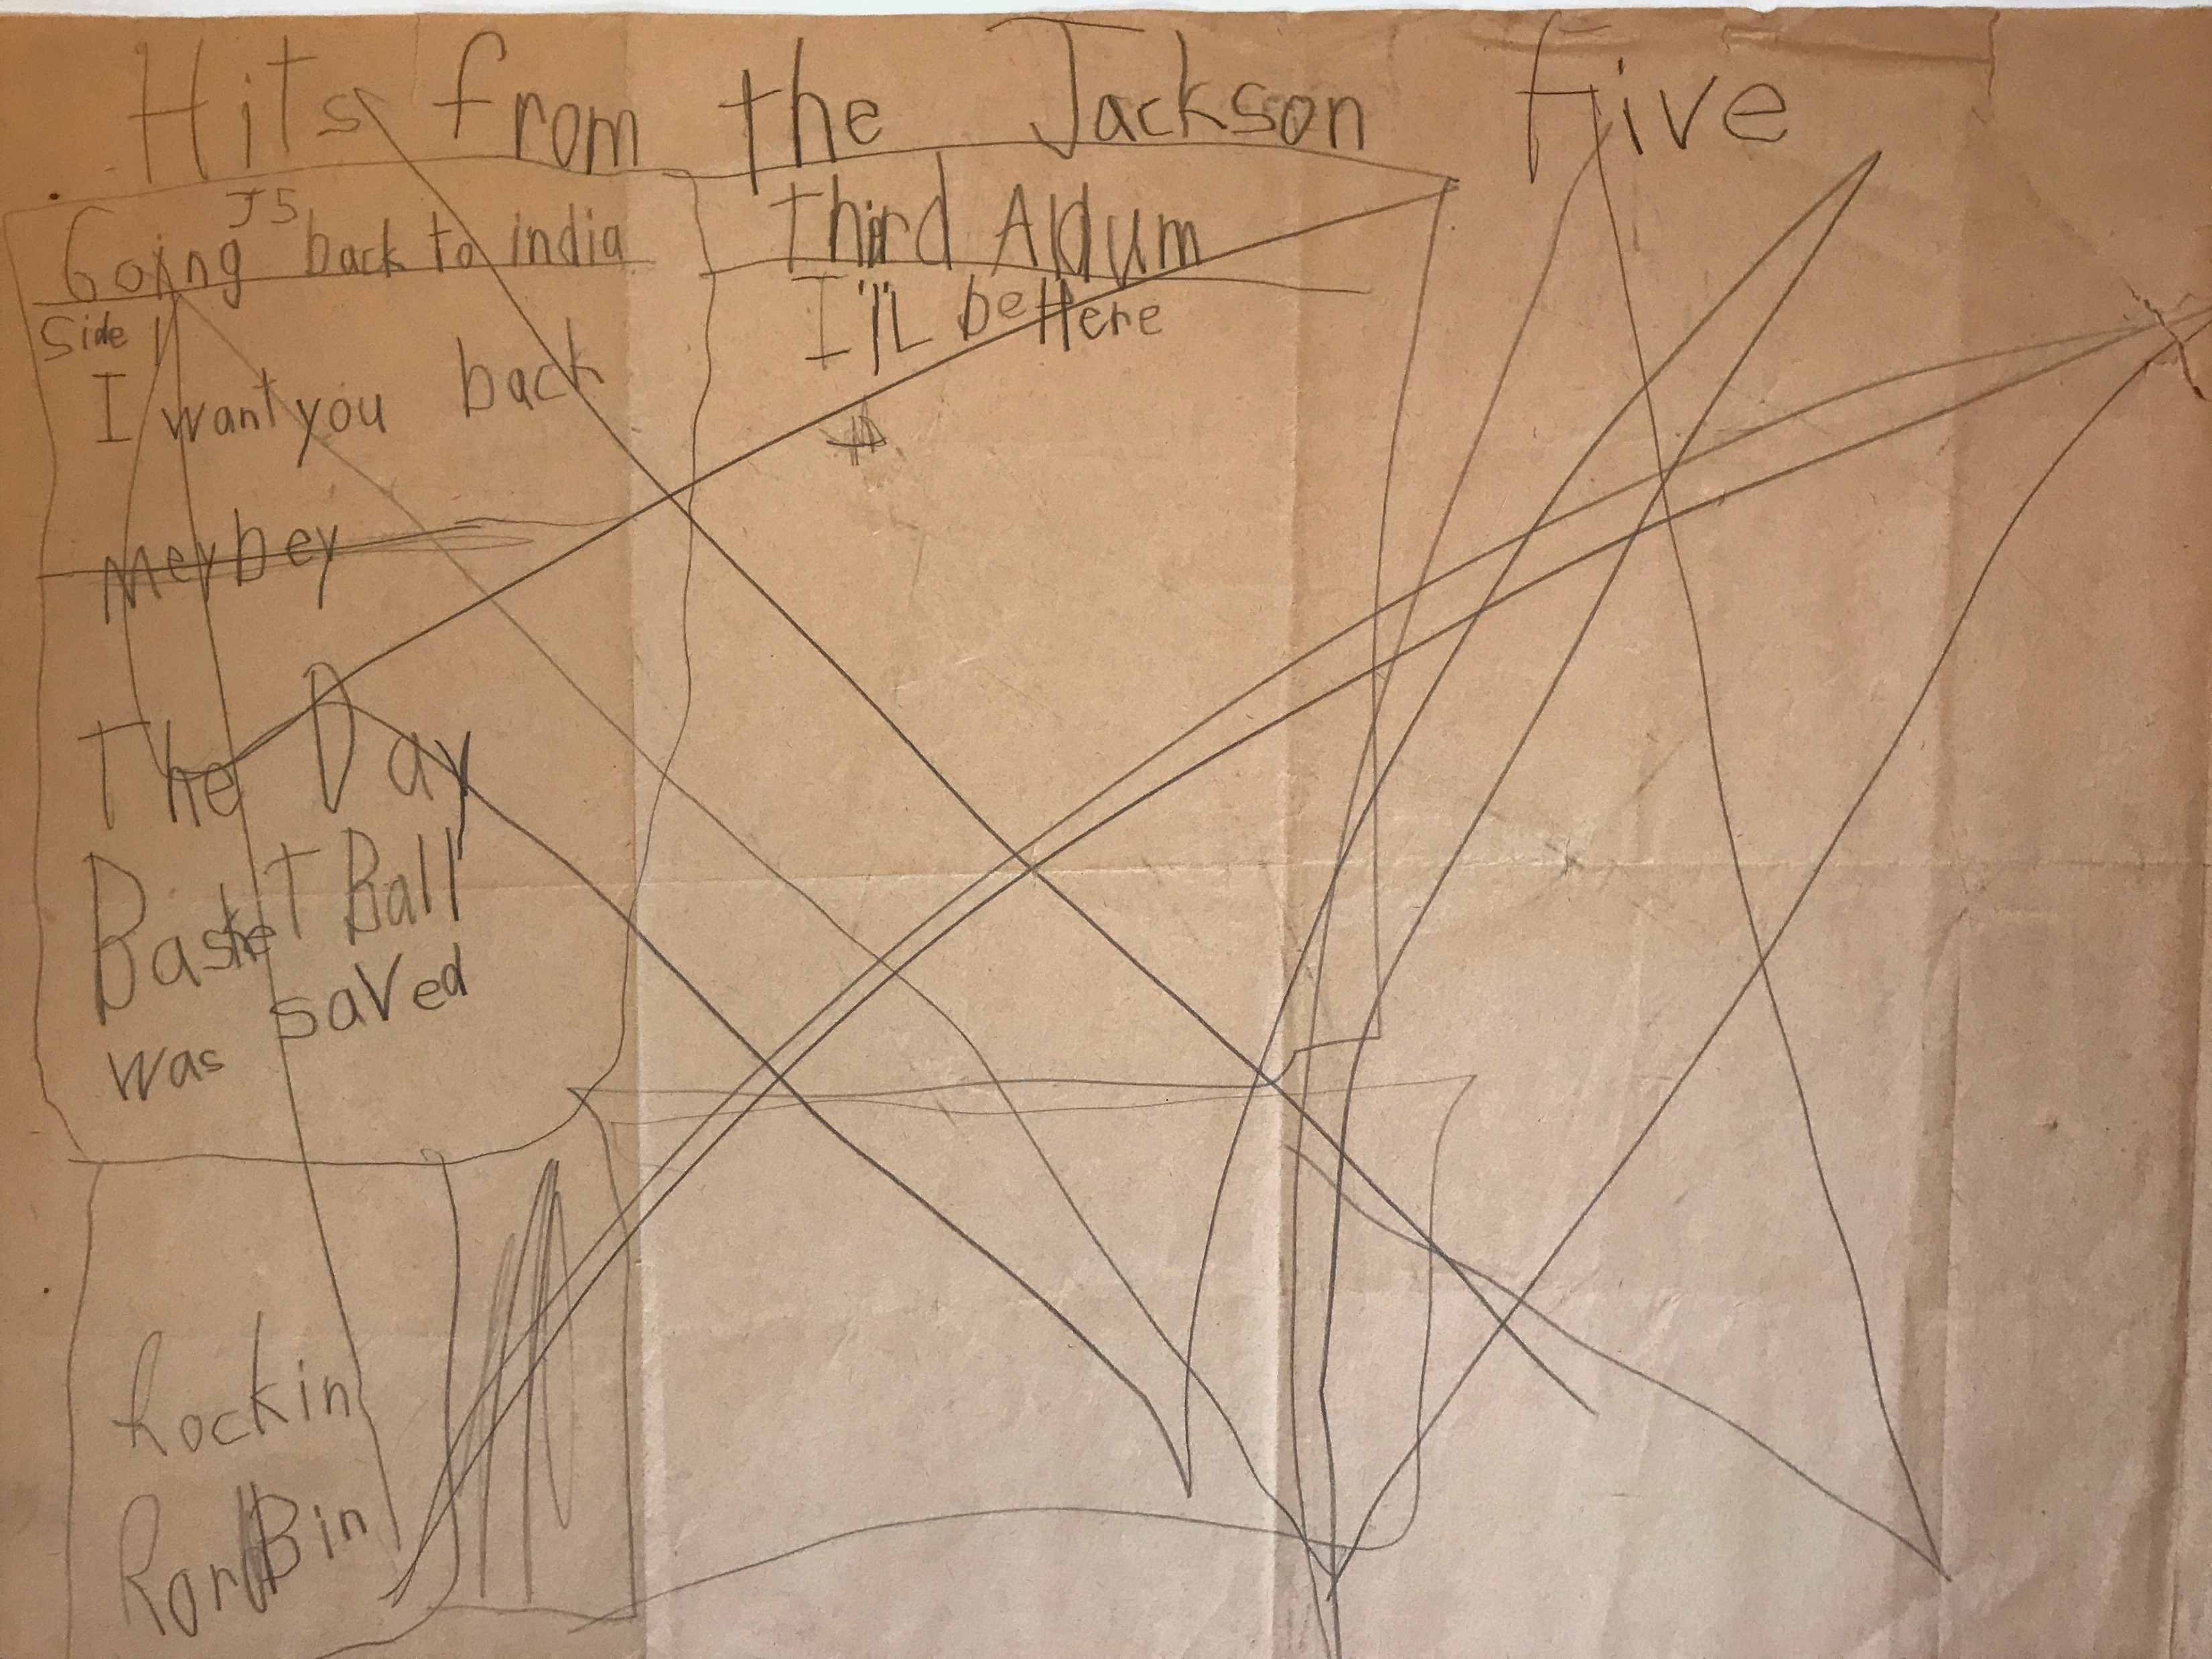 Hits from the Jackson five
J5
Going back to india
Side 1
I want you back
meybey
The Day
BaskeT Ball
was saved
Rockin
Bin
Third Aldum
I'lL beHere